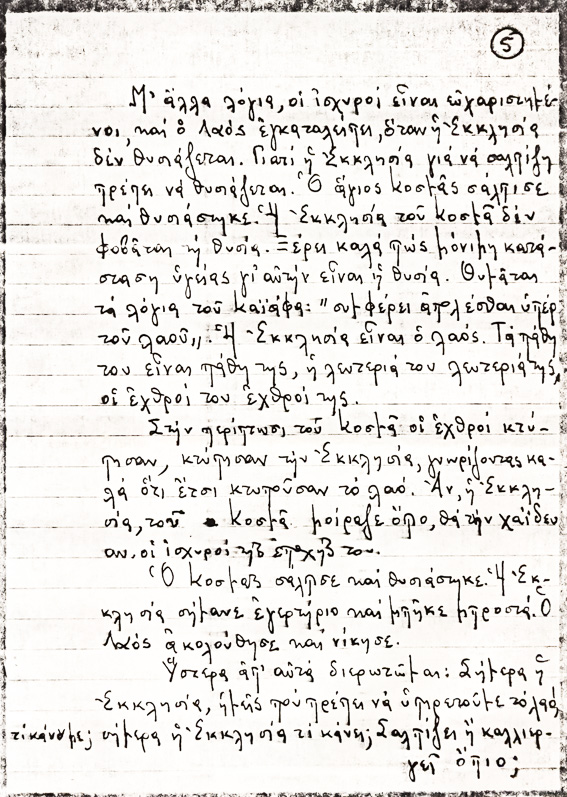 5
Μ' ἄλλα λόγια, οἱ ἰσχυροί εἶναι εὐχαριστημέ-
νοι, καί ὁ Λαός ἐγκαταλείπει, ὅταν ἡ Ἐκκλησία
δέν θυσιάζεται. Γιατί ἡ Ἐκκλησία γιά νά σαλπίζη
πρέπει νά θυσιάζεται. Ὁ ἅγιος Κοσμᾶς σάλπισε
καί θυσιάστηκε. Ἡ Ἐκκλησία τοῦ Κοσμᾶ δέν
φοβᾶται τή θυσία. Ξέρει καλά πώς μόνιμη κατά-
σταση ὑγείας γι' αὐτήν εἶναι ἡ θυσία. Θυμᾶται
τά λόγια τοῦ Καϊάφα: "συμφέρει ἀπολέσθαι ὑπέρ
τοῦ λαοῦ,,. Ἡ Ἐκκλησία εἶναι ὁ λαός. Τά πάθη
του εἶναι πάθη της, ἡ λευτεριά του λευτεριά της,
οἱ ἐχθροί του ἐχθροί της.
Στήν περίπτωσι τοῦ Κοσμᾶ οἱ ἐχθροί κτύ-
πησαν, κτύπησαν τήν Ἐκκλησία, γνωρίζοντας κα-
λά ὅτι ἔτσι κτυποῦσαν τό λαό. Ἄν, ἡ Ἐκκλη-
σία, τοῦ Κοσμᾶ μοίραζε ὄπιο, θά τήν χαΐδευ
αν οἱ ἰσχυροί τῆς ἐποχῆς του.
Ὁ Κοσμᾶς σάλπισε καί θυσιάστηκε. Ἡ Ἐκ-
κλησία σήμανε ἐγερτήριο καί μπῆκε μπροστά. Ὁ
Λαός ἀκολούθησε καί νίκησε.
Ὕστερα ἀπ' αὐτά διερωτῶμαι: Σήμερα ἡ
Ἐκκλησία, ἡμεῖς πού πρέπει νά ὑπηρετοῦμε τό λαό,
τί κάνουμε; σήμερα ἡ Ἐκκλησία τί κάνει; Σαλπίζει ἤ καλλιερ-
γεῖ ὄπιο;